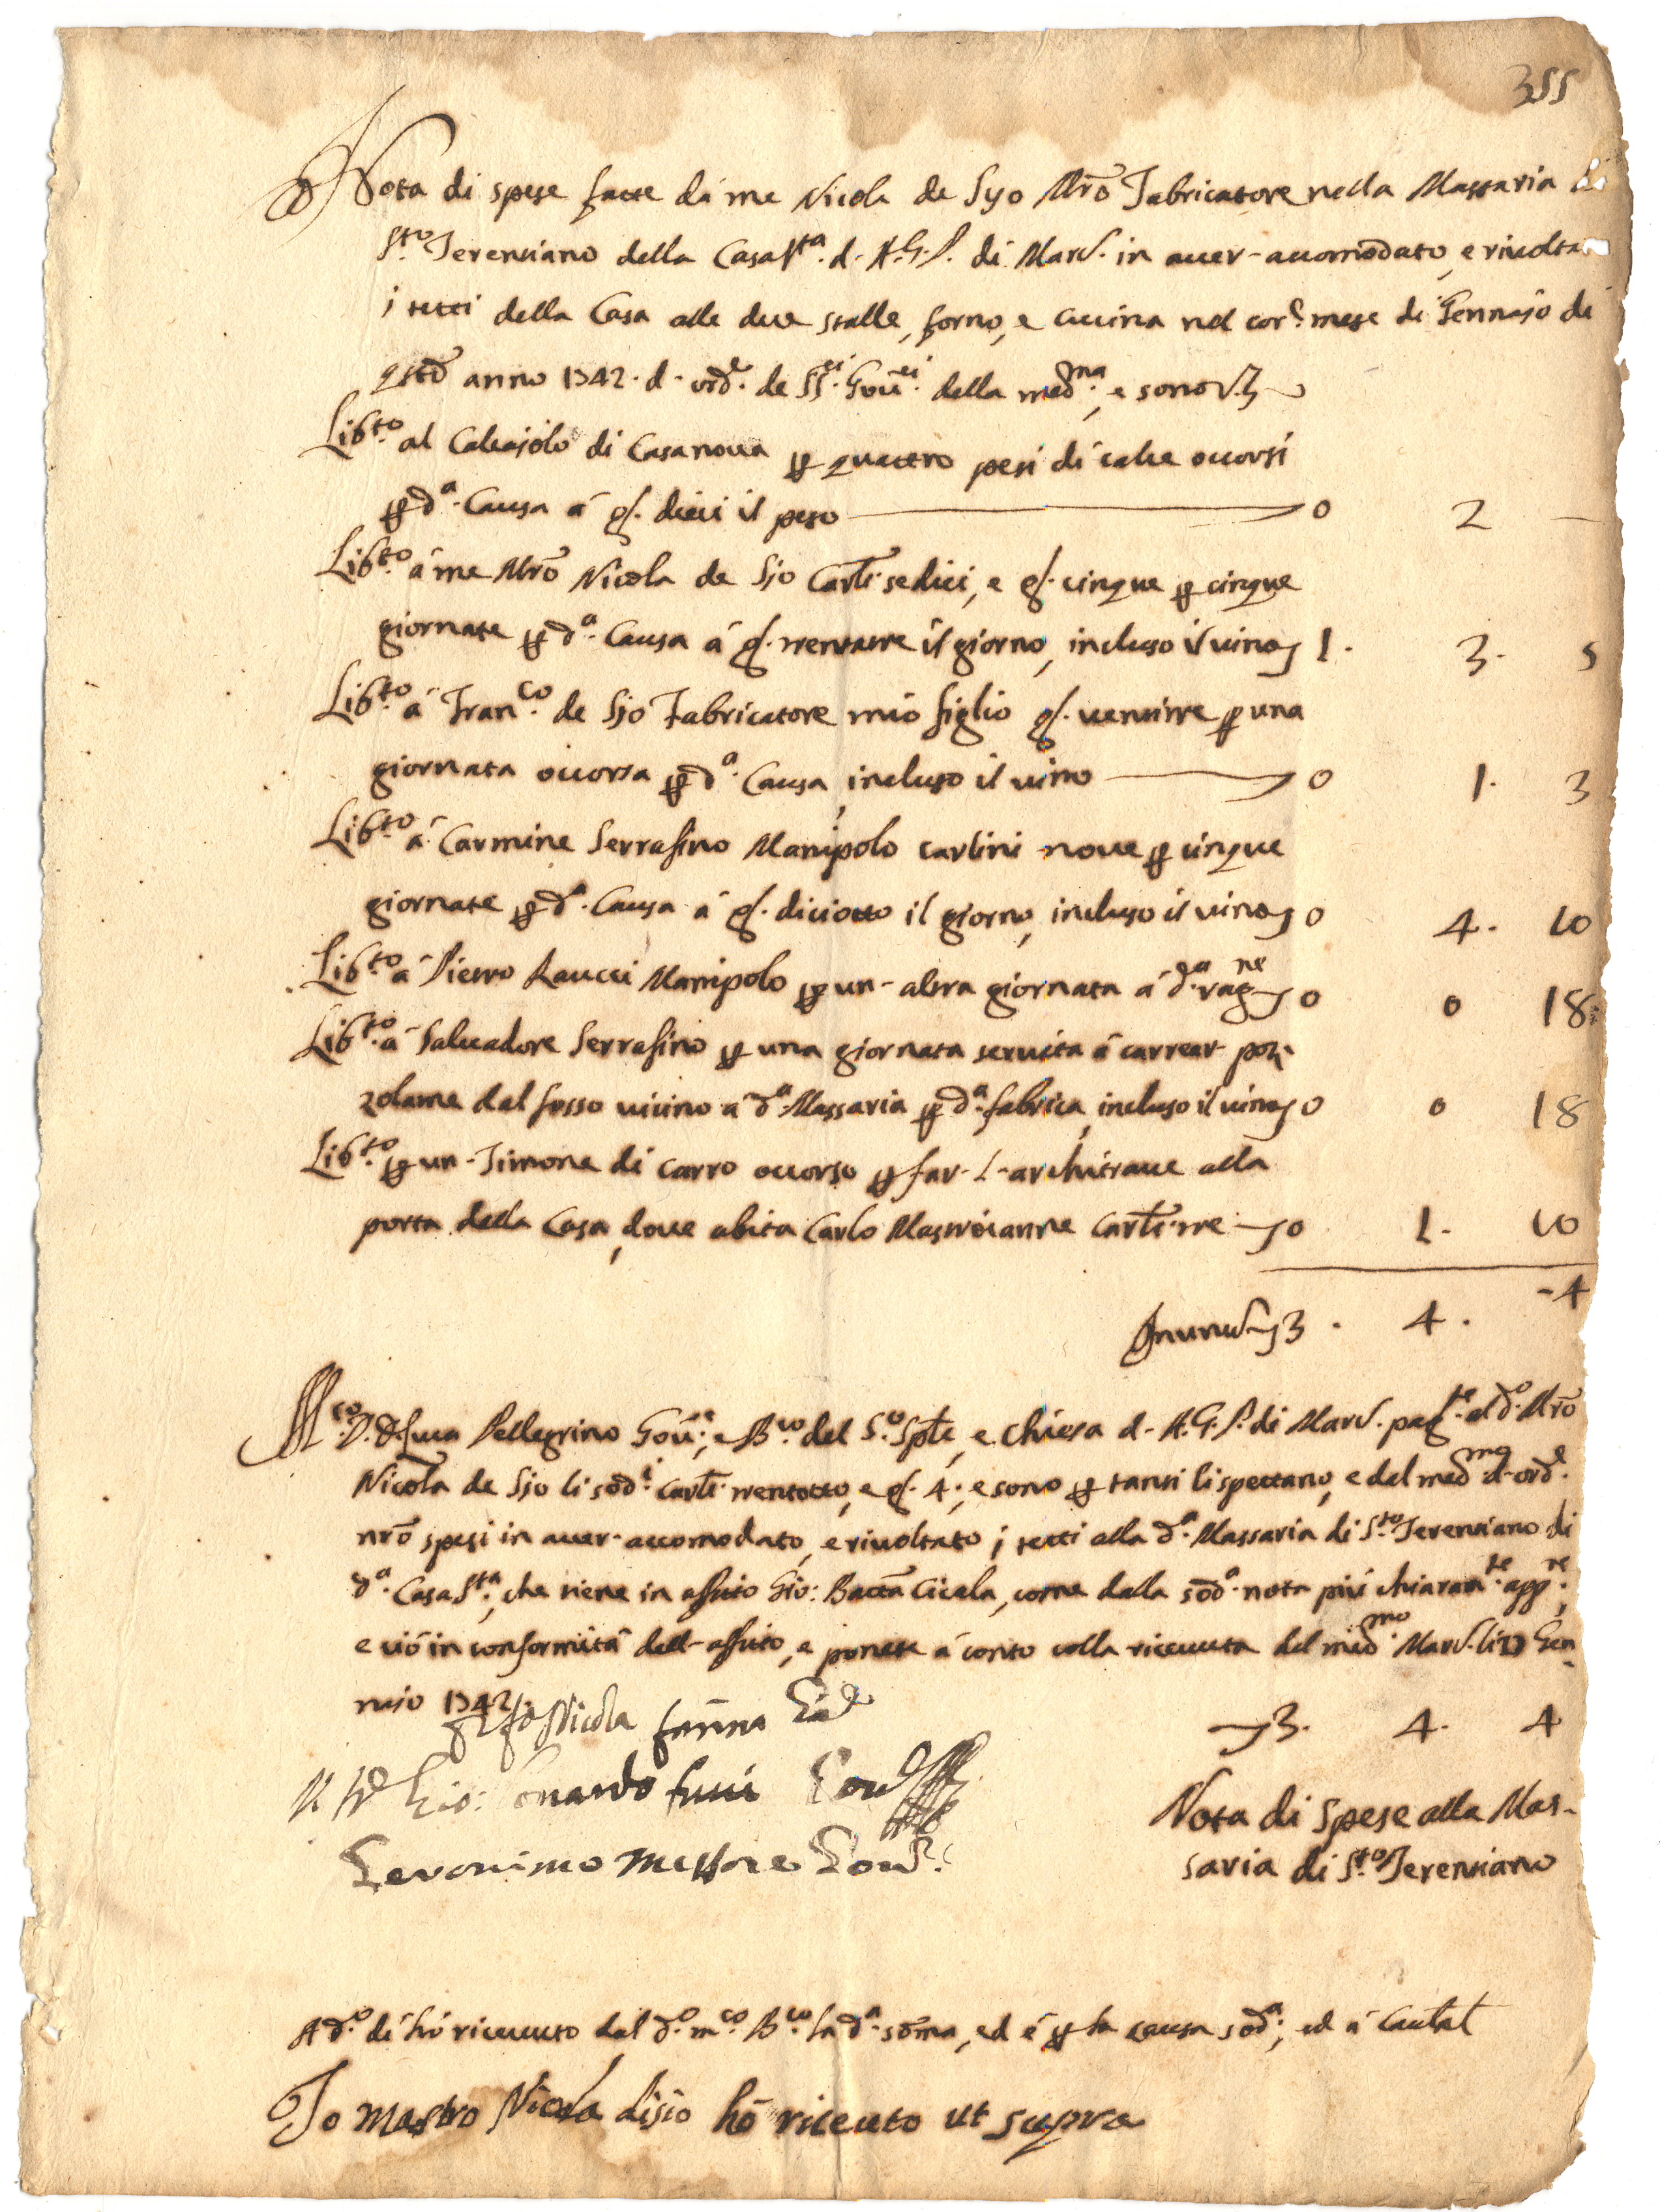 355
Nota di spese fatte dà me Nicola de Syo Mrõ Fabricatore nella Massaria di
S.to Terenziano della Casa S.ta d. A.G.P. di Marc. in aver-accomodato, e rivolta
i tetti della Casa alle due stalle, forno, e cucina nel cor.e mese di Gennajo di
qstõ anno 1742. d. ord.e de SS.ri Gov.ri della med.ma, e sono V3
Lib.to al Calcajolo di Casanova per quattro pesi di calce occorsi
per d.a Causa á g. dieci il peso 0 2 —
Lib.to á me Mrõ Nicola de Sjo Carli sedici, e g. cinque per cinque
giornate per d.a Causa á g. trentatre il giorno, incluso il vino 1. 3. 5
Lib.to á Fran.co de Sjo Fabricatore mio figlio g. ventitre per una
giornata occorsa per d.a Causa, incluso il vino 0 1. 3
Lib.to á Carmine Serrafino Manipolo carlini nove per cinque
giornate per d.a Causa á g. diciotto il giorno, incluso il vino 0 4. 10
Lib.to á Pietro Raucci Manipolo per un-altra giornata á d.a rag.ne 0 0 18
Lib.to á Salvadore Serrafino per una giornata servita á carrear poz-
zolame dal fosso vicino á d.a Massaria per d.a fabrica, incluso il vino 0 0 18
Lib.to per un-Timone di carro occorso per far-l-architrave alla
porta della Casa, dove abita Carlo Mastroianne Carli tre 0 1. 10
3. 4. -4
M.co D. Luca Pellegrino Gov.e, e B.co del S.o Sple, e Chiesa d. A.G.P. di Marc. pag.te al d.o Mrõ
Nicola de Sjo li sod.i Carli trentotto, e g. 4., e sono per tanti li spettano, e dal med.mo d-ord.e
nrõ spesi in aver-accomodato, e rivoltato i tetti alla d.a Massaria di S.to Terenziano di
d.a Casa S.ta, che tiene in affitto Gio: Batta Cicala, come dalla sod.a nota più chiaram.te app.re,
e ciò in conformità dell-affitto, e ponete á conto colla ricevuta del med.mo Marc. li 17 Gen-
naio 1742
Nicola farina
3. 4. 4
Gio: Gov.
Nota di Spese alla Mas-
Geronimo Gov.
saria di S.to Terenziano
A d.o dí hò ricevuto dal d.o m.co B.co la d.a somma, ed é per la causa sod.a, ed á Cautal
Io Mastro Nicola disio hò riceuto ut supra